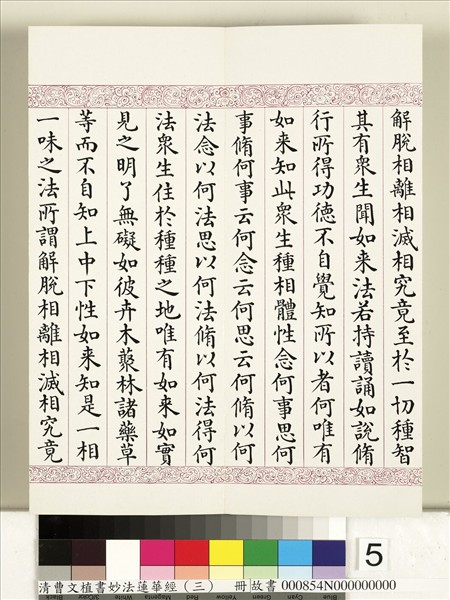 解脫相離相滅相究竟至於一切種智
其有眾生聞如来法若持讀誦如說脩
行所得功德不自覺知所以者何唯有
如来知此眾生種相體性念何事思何
事脩何事云何念云何思云何脩以何
法念以何法思以何法脩以何法得何
法眾生住於種種之地唯有如来如實
見之明了無礙如彼卉木藂林諸藥草
等而不自知上中下性如来知是一相
一味之法所謂解脫相離相滅相究竟
5
清曹文植書妙法蓮華經（三） 冊 故書 000854N000000000